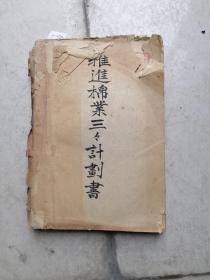 推進棉業三々計劃書